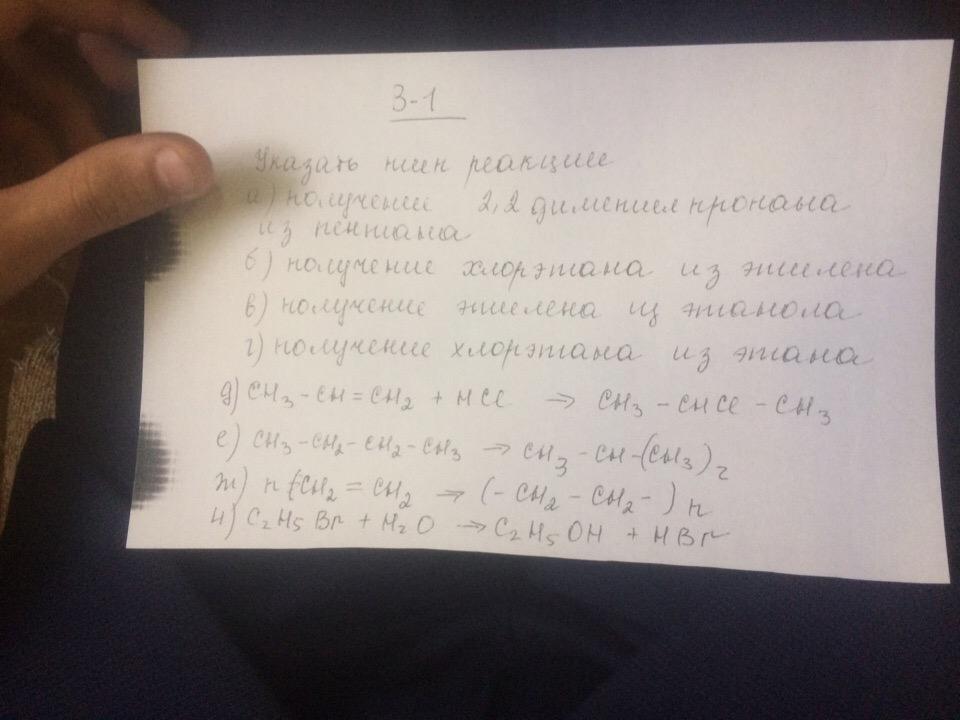 З-1
Указать тип реакции
а) получение 2,2 диметилпропана
из пентана
б) получение хлорэтана из этилена
в) получение этилена из этанола
г) получение хлорэтана из этана
д) CH₃-CH=CH₂ + HCl → CH₃-CHCl-CH₃
е) CH₃-CH₂-CH₂-CH₃ → CH₃-CH-(CH₃)₂
ж) n(CH₂=CH₂ → (-CH₂-CH₂-)n
и) C₂H₅Br + H₂O → C₂H₅OH + HBr